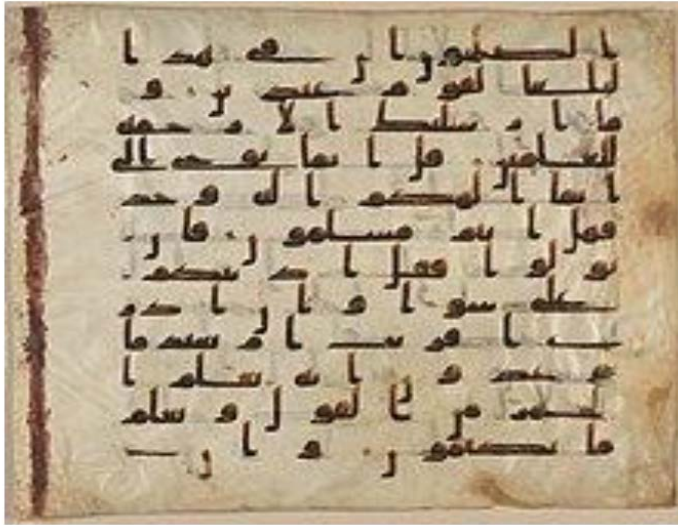 الصلحون ان في هذا
لبلغا لقوم عبدين و
ما ارسلنك الا رحمه
للعلمين قل انما يوحى الى
انما الهكم اله وحد
فهل انتم مسلمون فان
تولوا فقل اذنتكم
على سوا وان ادر
ى اقريب ام بعيد ما
توعدون انه يعلم ا
لجهر من القول ويعلم
ما تكتمون وان